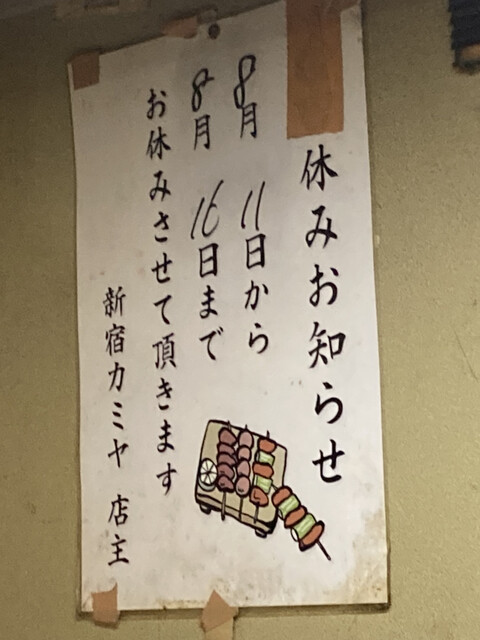 休みお知らせ
8月 11日から
8月 16日まで
お休みさせて頂きます
新宿カミヤ 店主